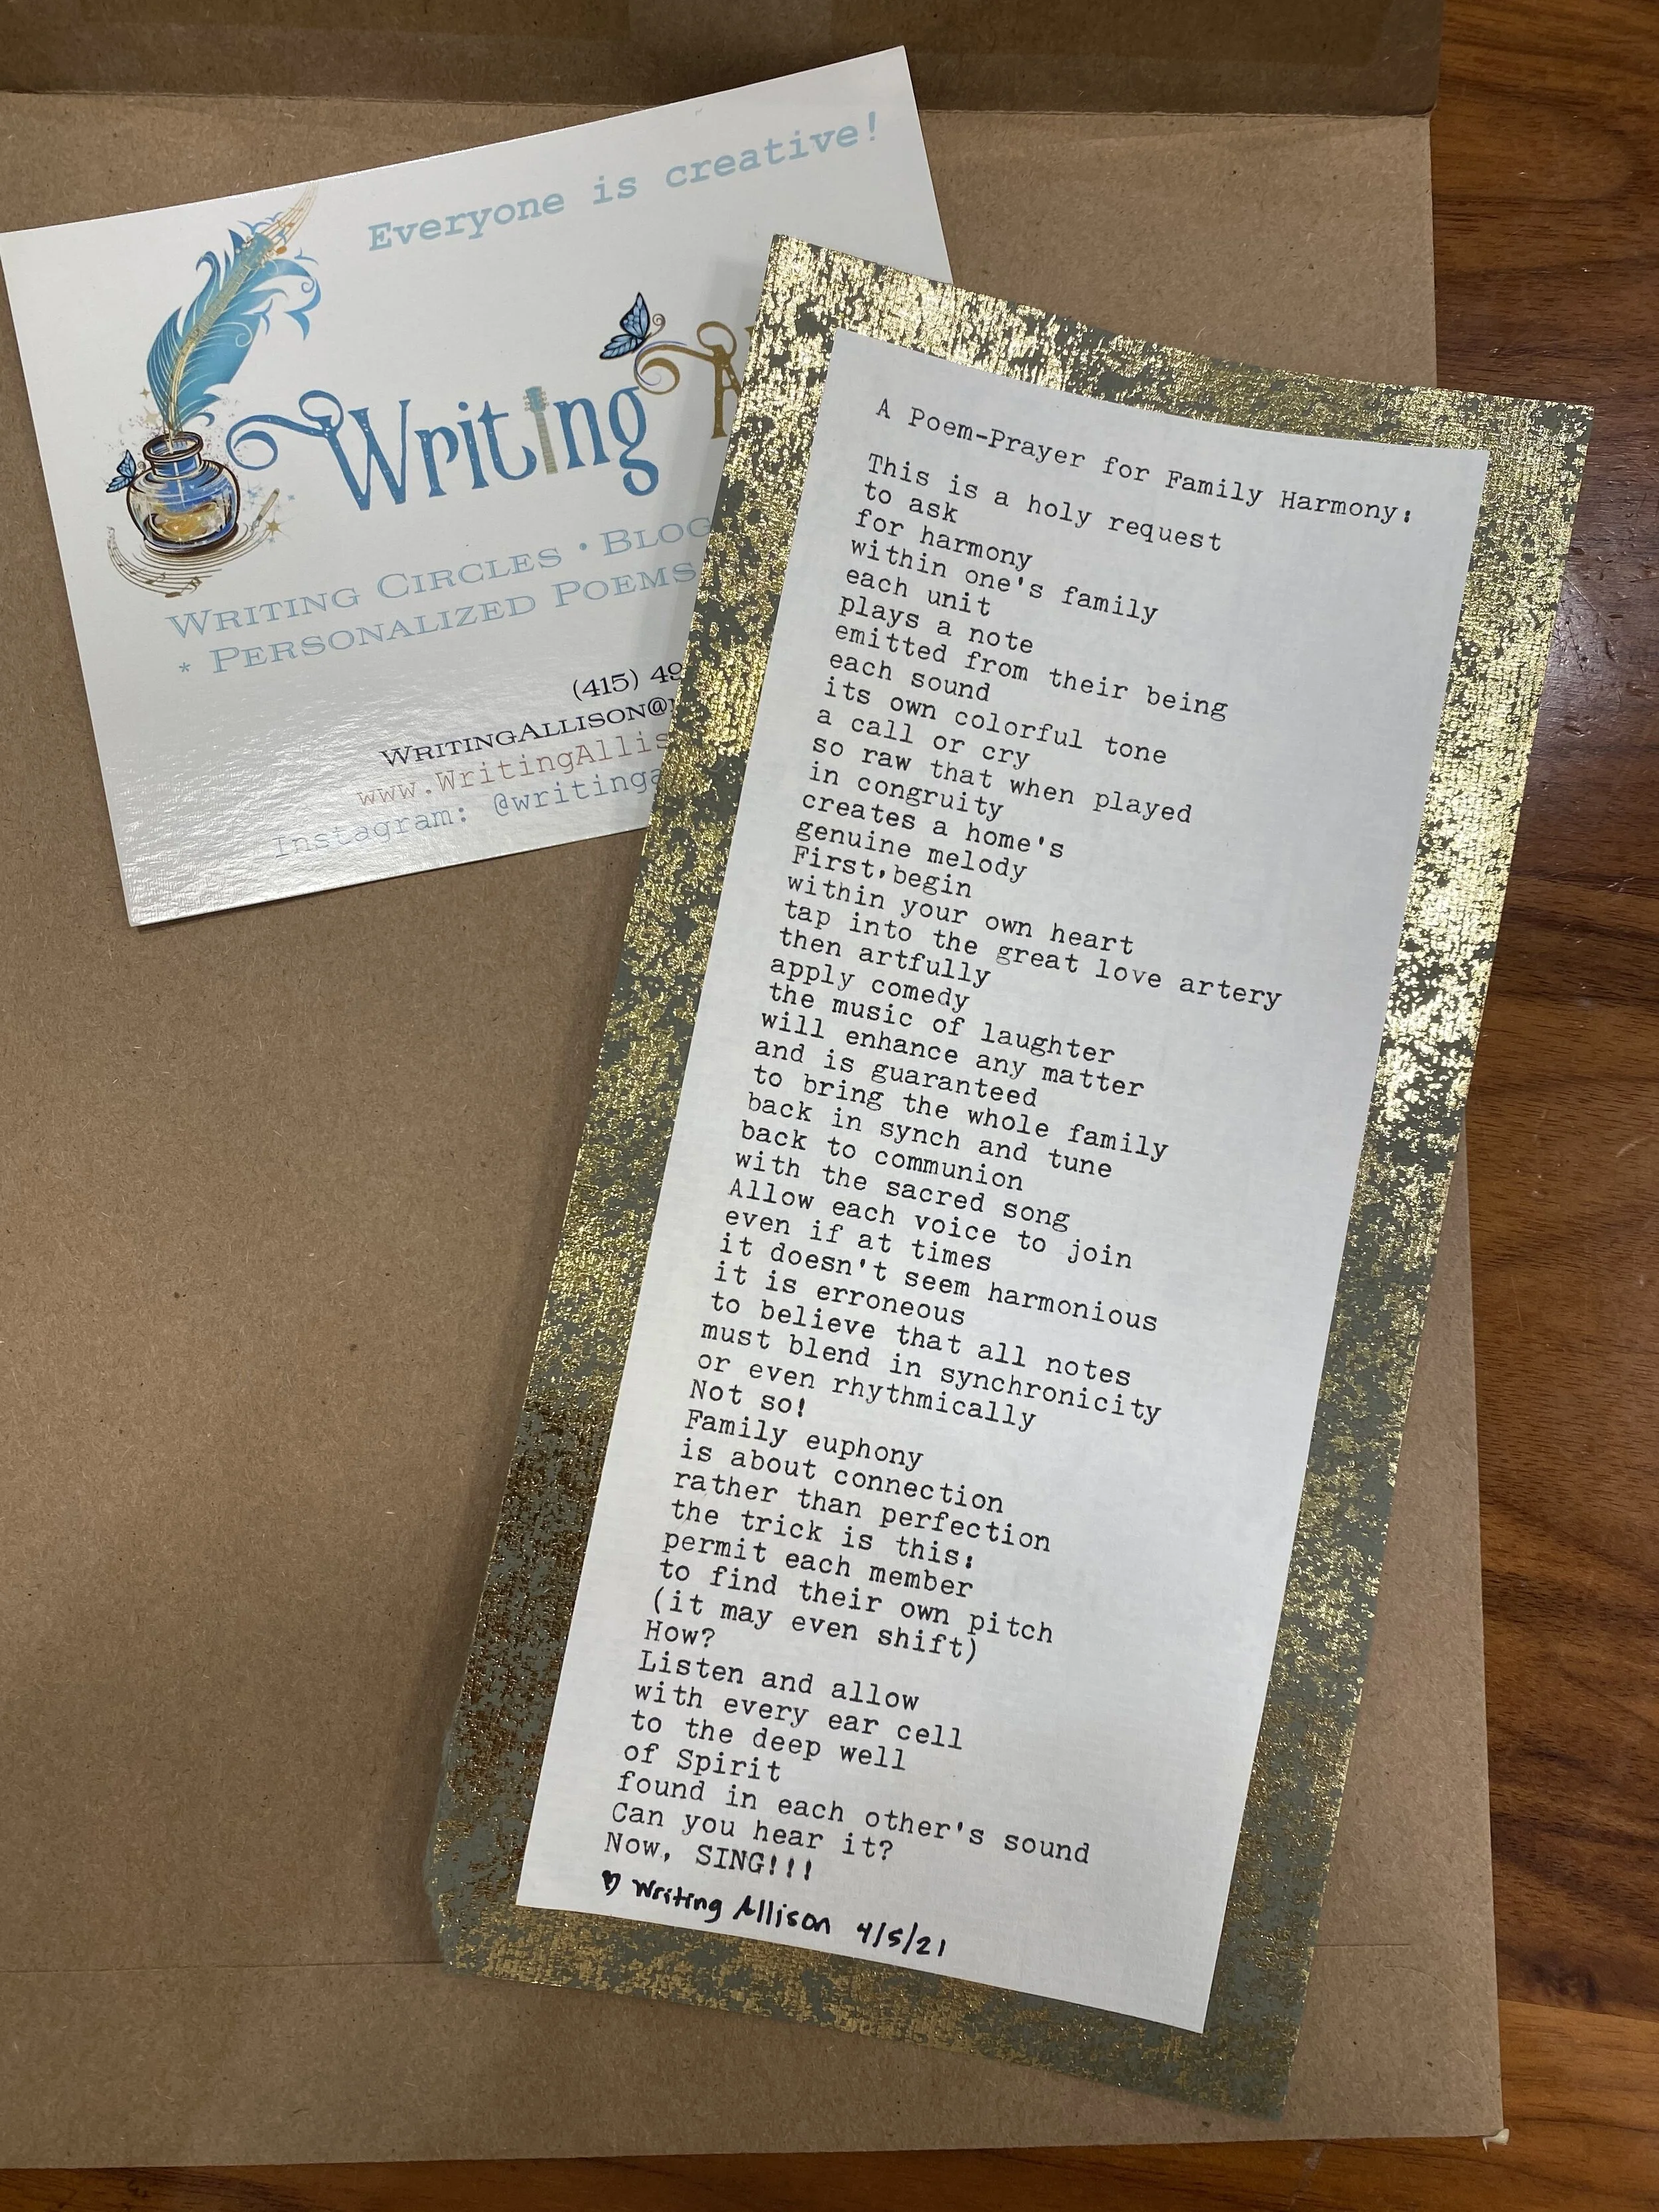 Everyone is creative!
Writing
WRITING CIRCLES • BLOG
* PERSONALIZED POEMS
(415) 49
WRITINGALLISON@
www.WritingAllis
Instagram: @writinga
A Poem-Prayer for Family Harmony:
This is a holy request
to ask
for harmony
within one's family
each unit
plays a note
emitted from their being
each sound
its own colorful tone
a call or cry
so raw that when played
in congruity
creates a home's
genuine melody
First, begin
within your own heart
tap into the great love artery
then artfully
apply comedy
the music of laughter
will enhance any matter
and is guaranteed
to bring the whole family
back in synch and tune
back to communion
with the sacred song
Allow each voice to join
even if at times
it doesn't seem harmonious
it is erroneous
to believe that all notes
must blend in synchronicity
or even rhythmically
Not so!
Family euphony
is about connection
rather than perfection
the trick is this:
permit each member
to find their own pitch
(it may even shift)
How?
Listen and allow
with every ear cell
to the deep well
of Spirit
found in each other's sound
Can you hear it?
Now, SING!!!
♡ Writing Allison 4/5/21